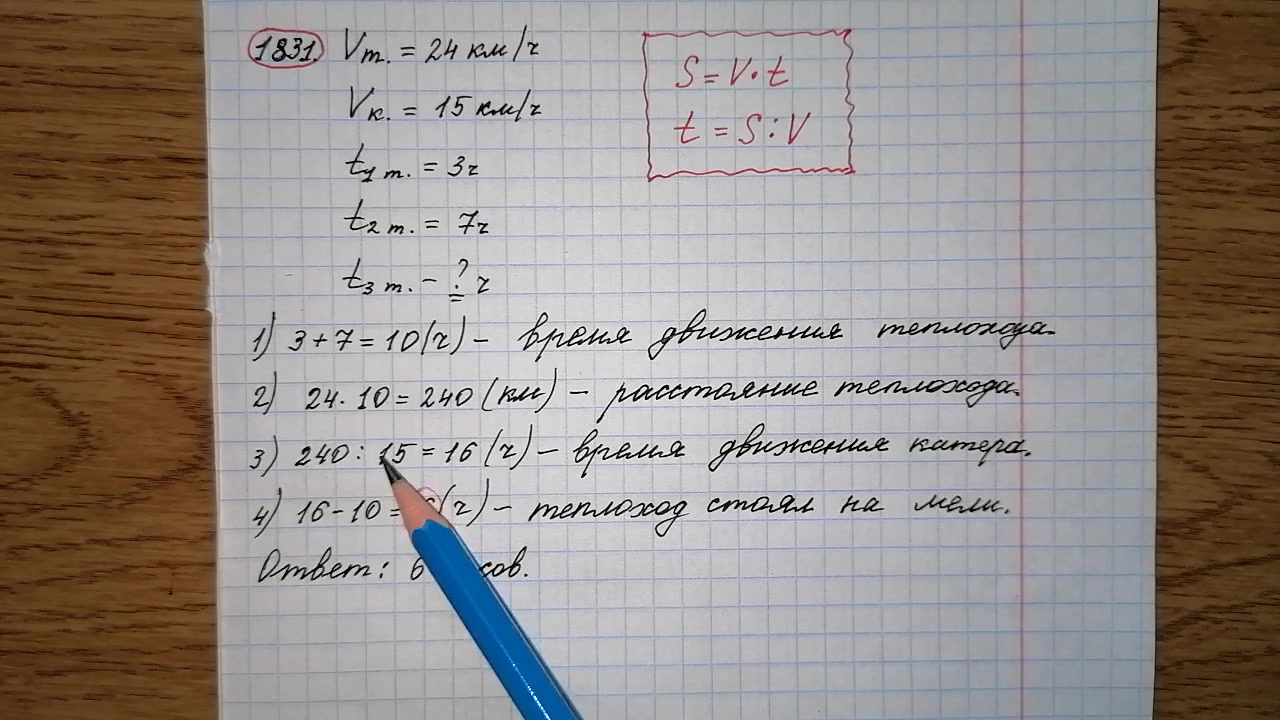 1831. Vт. = 24 км/ч
Vк. = 15 км/ч
t1 т. = 3ч
t2 т. = 7ч
t3 т. – ? ч
S = V · t
t = S : V
1) 3 + 7 = 10 (ч) – время движения теплохода.
2) 24 · 10 = 240 (км) – расстояние теплохода.
3) 240 : 15 = 16 (ч) – время движения катера.
4) 16 – 10 = 6 (ч) – теплоход стоял на мели.
Ответ: 6 сов.